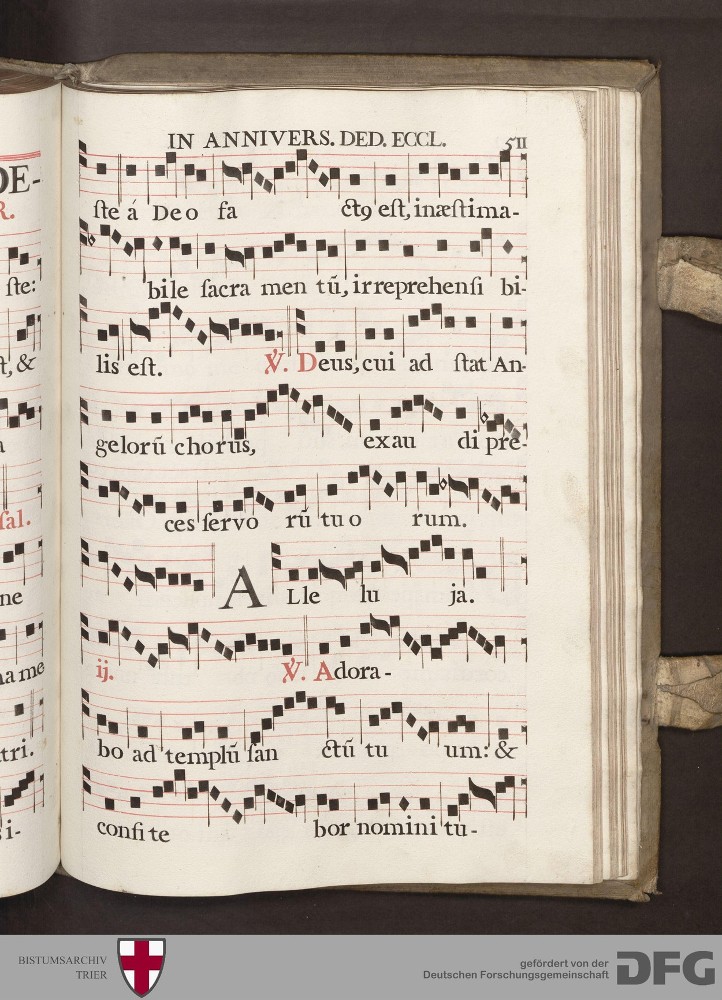 DE-
R.
ste:
t, &
a
sal.
ne
na me
tri.
si-
IN ANNIVERS. DED. ECCL. 511
ste á Deo fa ctꝯ est, inæstima-
bile sacra men tũ, irreprehensi bi-
lis est. ℣. Deus, cui ad stat An-
gelorũ chorus, exau di pre-
ces servo rũ tuo rum.
ALle lu ja.
ij. ℣. Adora-
bo ad templũ san ctũ tu um: &
confite bor nomini tu-
BISTUMSARCHIV
TRIER
gefördert von der
Deutschen Forschungsgemeinschaft
DFG